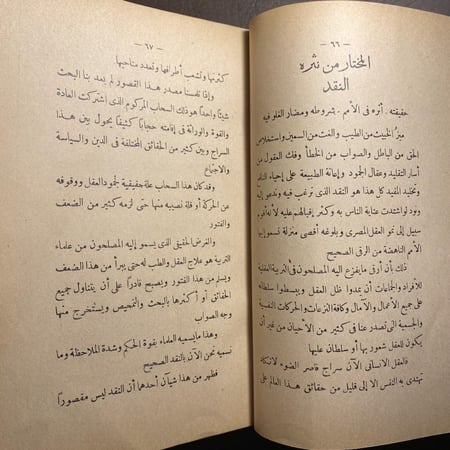 — ٦٦ —
المختار من نثره
النقد
حقيقته . أثره في الأمم . شروطه ومضار الغلو فيه
ميز الخبيث من الطيب والغث من السمين واستخلاص
الحق من الباطل والصواب من الخطأ وفك العقول من
أسار التقليد وعقال الجمود وإعانة الطبيعة على إحياء النافع
وتخليد المفيد كل هذا هو النقد الذي نرغب فيه وندعو إليه
ونود لو اشتدت عناية الناس به وكثر إقبالهم عليه لأنه أقوم
سبيل إلى نمو العقل المصري وبلوغه أقصى منزلة تسمو إليها
الأمم الناهضة من الرقي الصحيح
ذلك بأن أرقى ما يفزع اليه المصلحون في التربية العقلية
للأفراد والجماعات أن يمدوا ظل العقل ويبسطوا سلطانه
على جميع الأعمال والآمال وكافة النزعات والحركات النفسية
والجسمية التي تصدر عنا في كثير من الأحيان من غير أن
يكون للعقل شعور بها أو سلطان عليها
فالعقل الانساني الآن سراج قاصر الضوء لا تكاد
تهتدي به النفس الا إلى قليل من حقائق هذا العالم على
— ٦٧ —
كثرتها وتشعب أطرافها وتعدد مناحيها.
وإذا تلمسنا مصدر هذا القصور لم يعد بنا البحث
شيئاً واحداً هو ذلك السحاب المركوم الذي اشتركت العادة
والقوة والوراثة في إقامته حجاباً كثيفاً يحول بين هذا
السراج وبين كثير من الحقائق المختلفة في الدين والسياسة
والاجتماع
وقد كان هذا السحاب علة حقيقية لجمود العقل ووقوفه
عن الحركة أو قلة نصيبه منها حتى لزمه كثير من الضعف
والفتور
والغرض الحقيقي الذي يسمو إليه المصلحون من علماء
التربية هو علاج العقل والطب له حتى يبرأ من هذا الضعف
ويسلم من هذا الفتور ويصبح قادراً على أن يتناول جميع
الحقائق أو أكثرها بالبحث والتمحيص ويستخرج منها
وجه الصواب
وهذا ما يسميه العلماء بقوة الحكم وشدة الملاحظة وما
نسميه نحن الآن بالنقد الصحيح
فظهر من هذا شيآن أحدهما أن النقد ليس مقصوراً